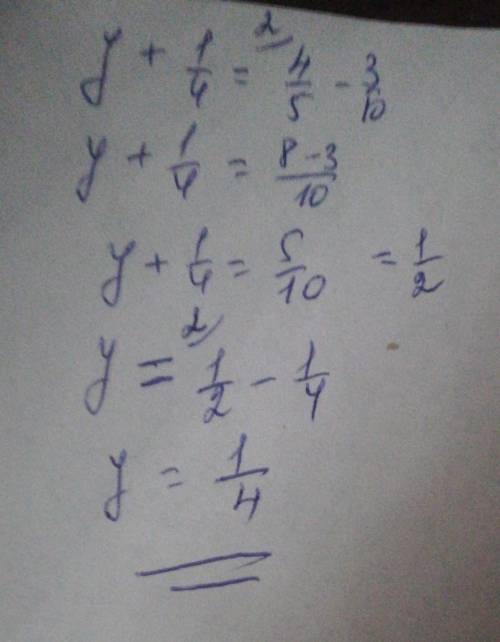 y + 1/4 = 2) 4/5 - 3/10
y + 1/4 = (8-3)/10
y + 1/4 = 5/10 = 1/2
y = 2) 1/2 - 1/4
y = 1/4